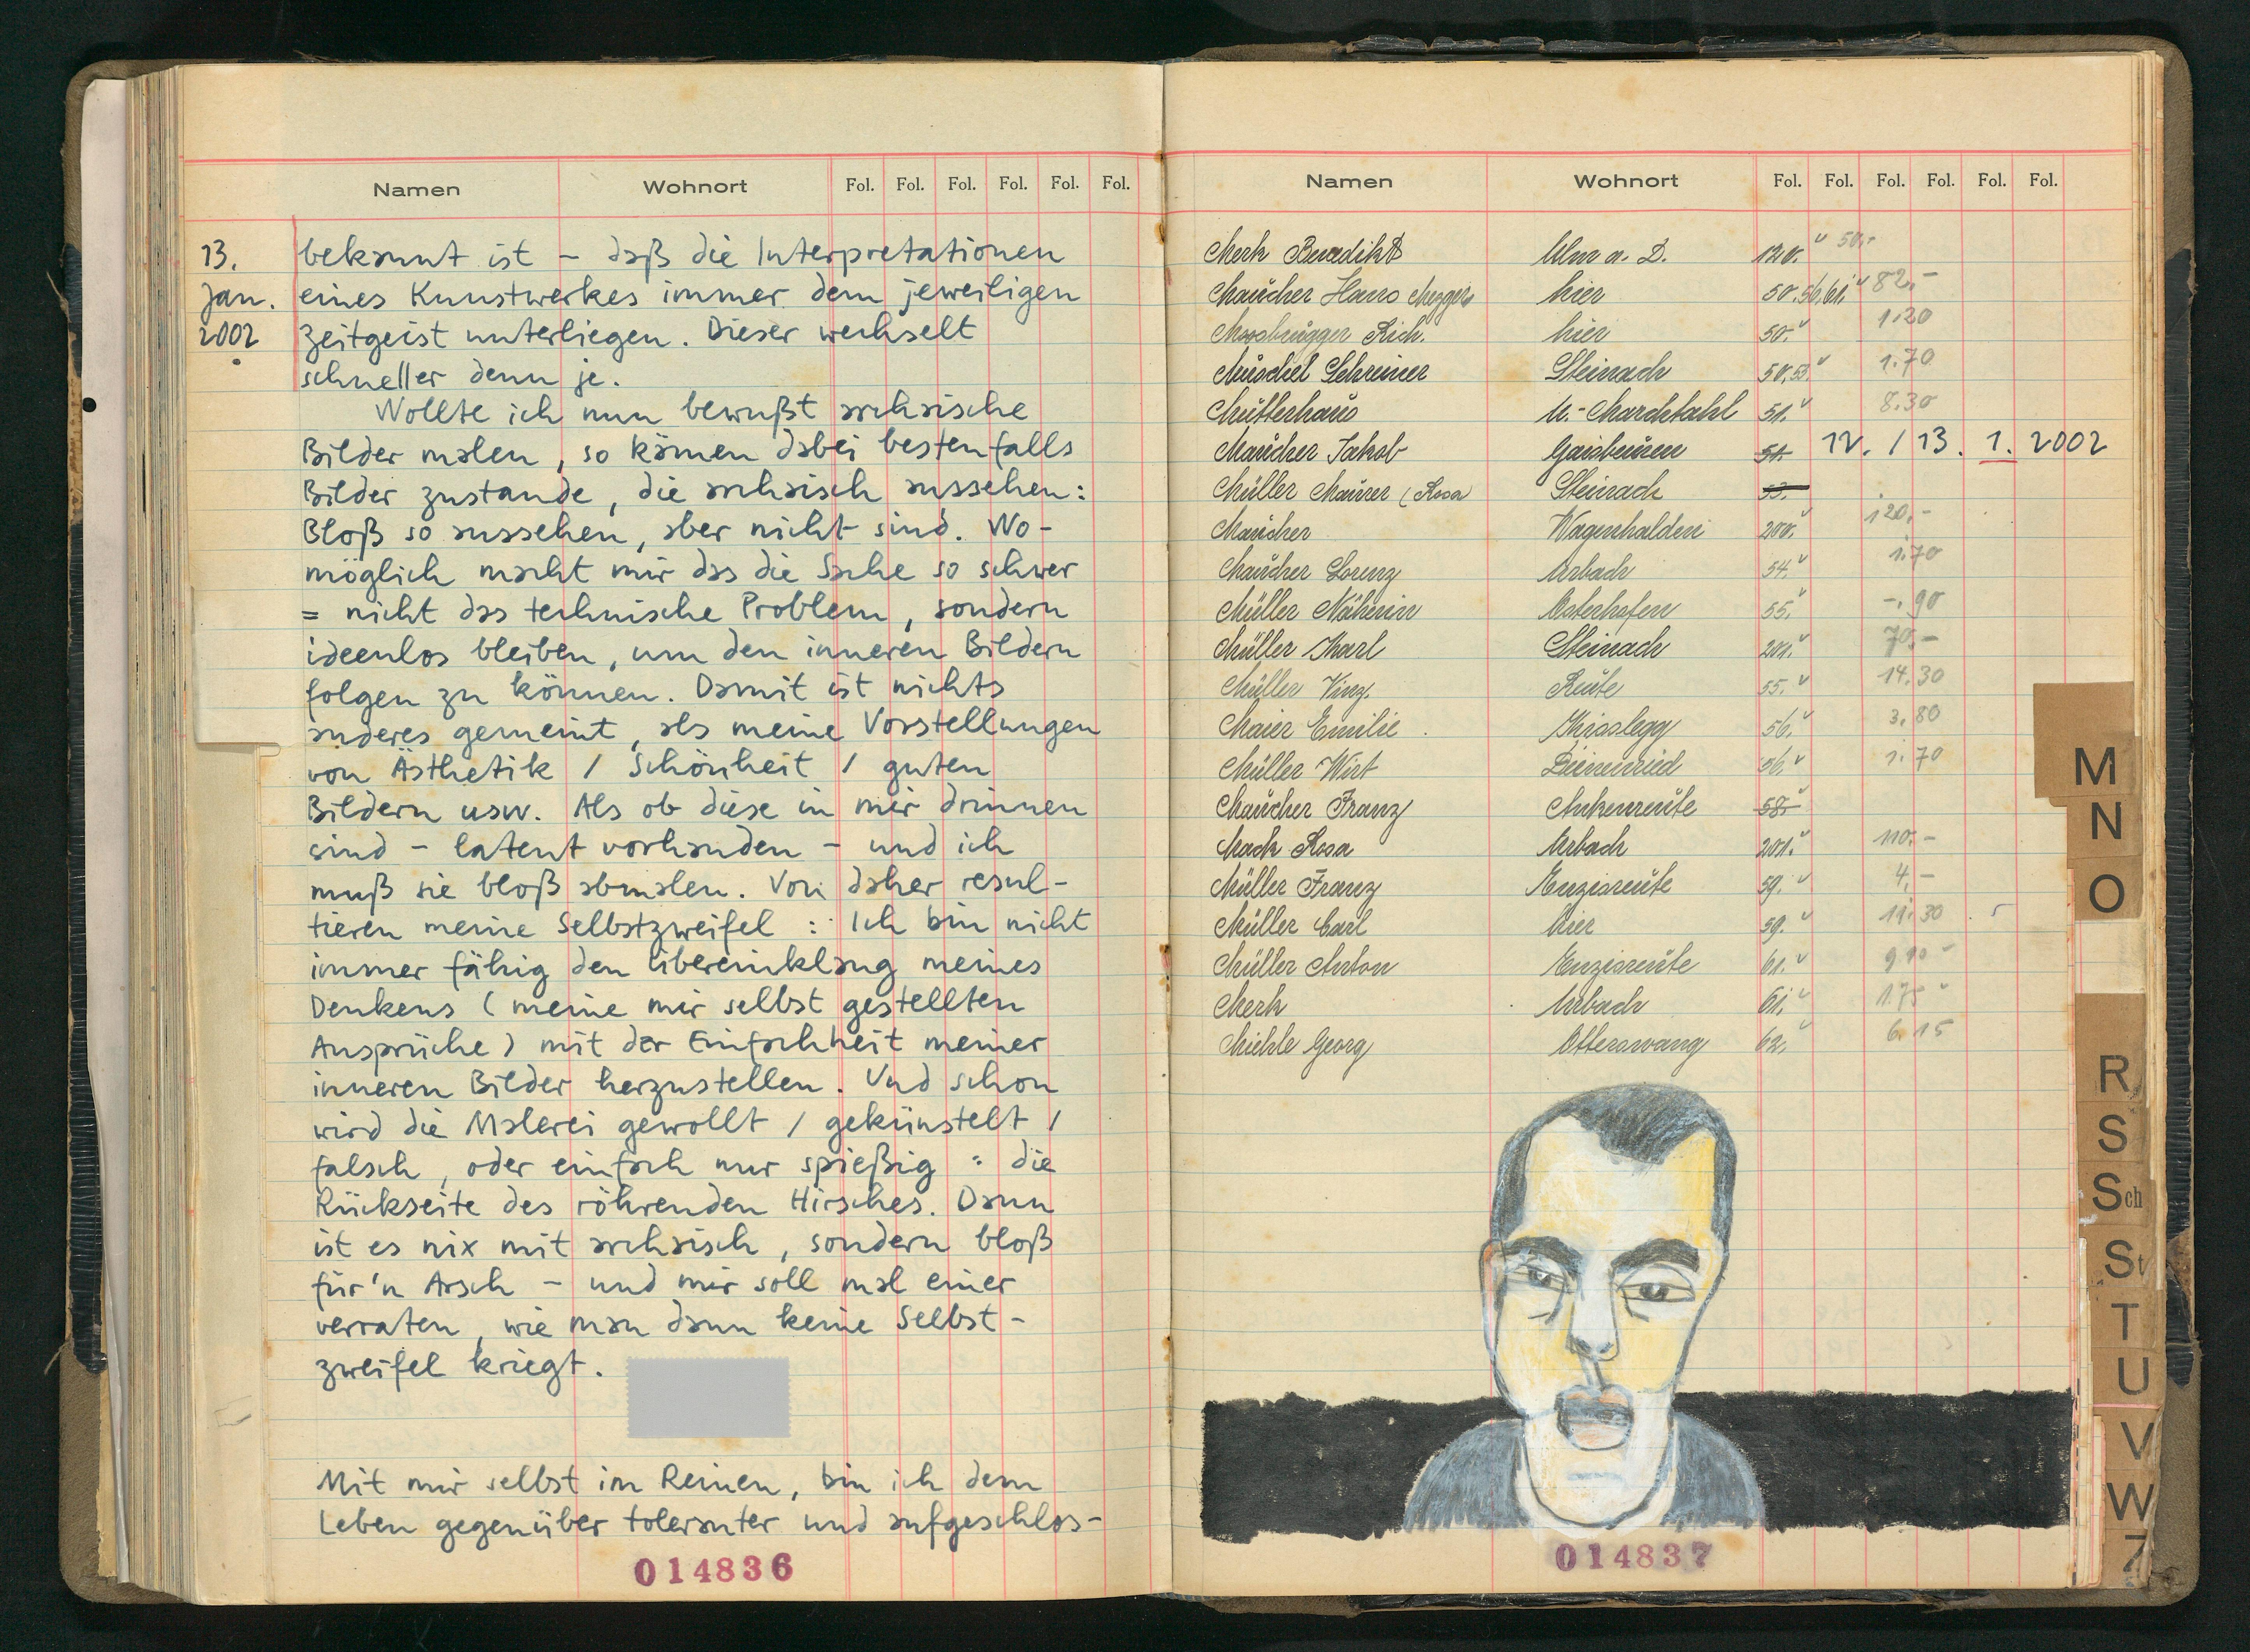 Namen Wohnort Fol. Fol. Fol. Fol. Fol. Fol.
13.
Jan.
2002
bekannt ist – daß die Interpretationen
eines Kunstwerkes immer dem jeweiligen
Zeitgeist unterliegen. Dieser wechselt
schneller denn je.
Wollte ich nun bewußt archaische
Bilder malen, so kämen dabei bestenfalls
Bilder zustande, die archaisch aussehen:
Bloß so aussehen, aber nicht sind. Wo-
möglich macht mir das die Sache so schwer
= nicht das technische Problem, sondern
ideenlos bleiben, um den inneren Bildern
folgen zu können. Damit ist nichts
anderes gemeint, als meine Vorstellungen
von Ästhetik / Schönheit / guten
Bildern usw. Als ob diese in mir drinnen
sind – latent vorhanden – und ich
muß sie bloß abmalen. Von daher resul-
tieren meine Selbstzweifel : Ich bin nicht
immer fähig den Übereinklang meines
Denkens (meine mir selbst gestellten
Ansprüche) mit der Einfachheit meiner
inneren Bilder herzustellen. Und schon
wird die Malerei gewollt / gekünstelt /
falsch, oder einfach nur spießig = die
Rückseite des röhrenden Hirsches. Dann
ist es nix mit archaisch, sondern bloß
für'n Arsch – und mir soll mal einer
verraten, wie man dann keine Selbst-
zweifel kriegt.
Mit mir selbst im Reinen, bin ich dem
Leben gegenüber toleranter und aufgeschlos-
014836
Namen Wohnort Fol. Fol. Fol. Fol. Fol. Fol.
Merk Benedikt Ulm a. D. 120. 50.-
Maucher Hans Metzger hier 50.56,61. 82.-
Moosbrugger Rich. hier 50. 1.20
Müschel Schreiner Steinach 50,53. 1.70
Mutterhaus U.- 51. 8.30
Maucher Jakob Gaisbeuren 51. 12. / 13. 1. 2002
Müller Maurer (Rosa Steinach 53.
Maucher Wagenhalden 200. 120.-
Maucher Lorenz Urbach 54. 1.70
Müller Näherin Osterhofen 55. -.90
Müller Karl Steinach 201. 70.-
Müller Vinz. Reute 55. 14.30
Maier Emilie Kisslegg 56. 3.80
Müller Wirt 56. 1.70
Maucher Franz Ankenreute 58.
Mack Rosa Urbach 201. 110.-
Müller Franz Enzisreute 59. 4.-
Müller Carl hier 59. 11.30
Müller Anton Enzisreute 61. 9.10
Merk Urbach 61. 1.75
Miehle Georg Otterswang 62. 6.15
014837
M
N
O
R
S
Sch
St
T
U
V
W
Z